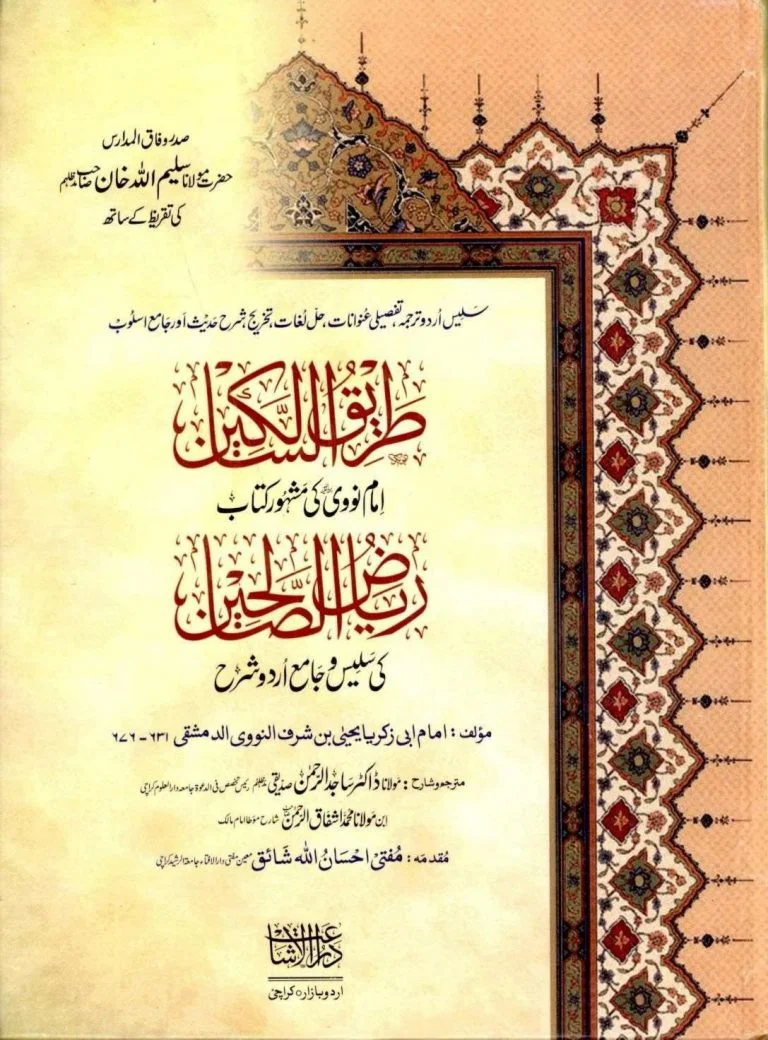 صدر وفاق المدارس
حضرت مولانا سلیم اللہ خان صاحب مدظلہم
کی تقریظ کے ساتھ
سلیس اُردو ترجمہ، تفصیلی عنوانات، حل لغات، تخریج، شرح حدیث اور جامع اسلوب
طریق السالکین
امام نووی کی مشہور کتاب
ریاض الصالحین
کی سلیس و جامع اُردو شرح
مؤلف : امام ابی زکریا یحییٰ بن شرف النووی الدمشقی ۶۳۱ - ۶۷۶
مترجم و شارح : مولانا ڈاکٹر ساجد الرحمٰن صدیقی مدظلہم رئیس تخصص فی الدعوۃ جامعہ دارالعلوم کراچی
ابن مولانا محمد اشفاق الرحمٰن شارح مؤطا امام مالک
مقدمہ : مُفتی احسان اللہ شائق معین مفتی دارالافتاء جامعۃ الرشید کراچی
دارالاشاعت
اردو بازار، کراچی